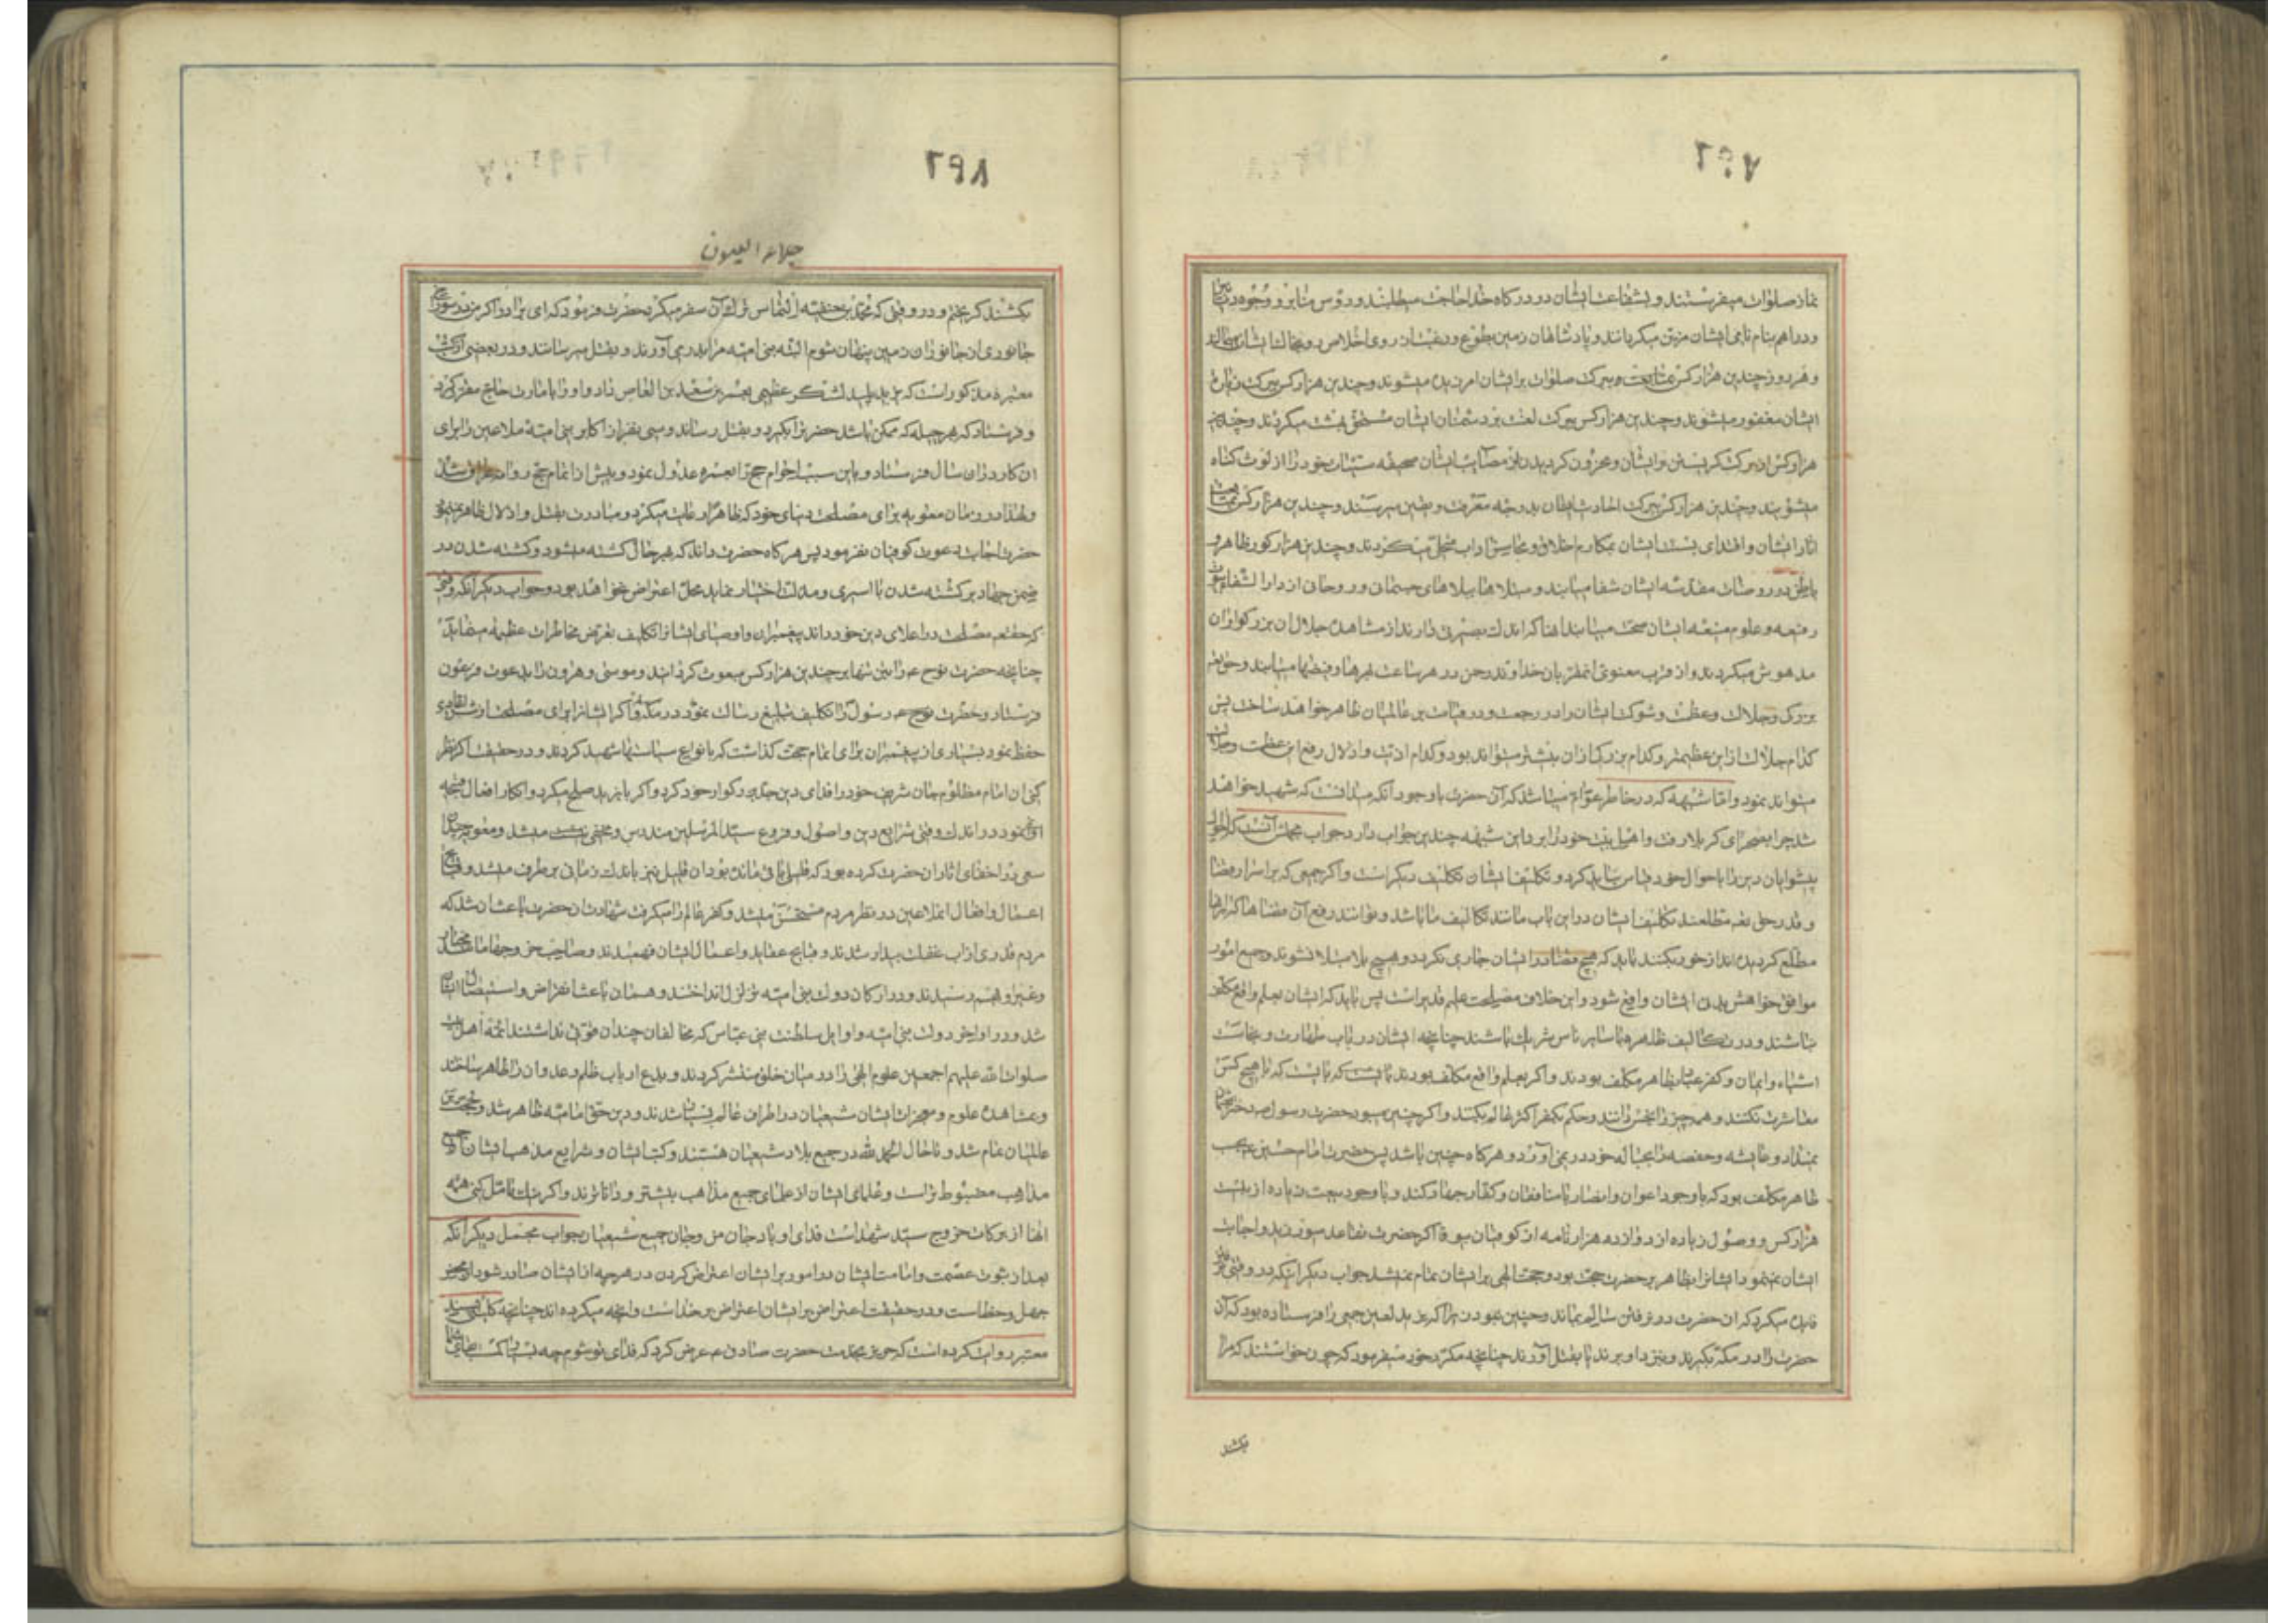 ۲۹۷
نماز صلوات میفرستند و بشفاعت ایشان در درگاه خدا حاجت میطلبند و رؤس منابر و وجوه دنانیر
و دراهم بنام نامی ایشان مزین میگردانند و پادشاهان زمین بطوع و روی اخلاص
و هر روز چندین هزار کس ببرکت صلوات بر ایشان امرزیده میشوند و چندین هزار کس ببرکت زیارت
ایشان مغفور میشوند و چندین هزار کس ببرکت لعنت بر دشمنان ایشان مستحق بهشت میگردند و چندین
هزار کس از برکت گریستن بر ایشان و محزون گردیدن از مصایب ایشان صحیفه سیئات خود را از لوث گناه
میشویند و چندین هزار کس ببرکت احادیث ایشان بدرجه معرفت و یقین میرسند و چندین هزار کس بمتابعت
اثار ایشان و اقتدای بسنت ایشان بمکارم اخلاق و محاسن اداب متحلی میگردند و چندین هزار کور ظاهر و
باطن در روضات مقدسه ایشان شفا مییابند و مبتلاها ببلاهای جسمانی و روحانی از دار الشفاء
رفیعه و علوم منیعه ایشان صحت مییابند انها که اندک بصیرتی دارند از مشاهده جلال ان بزرگواران
مدهوش میگردند و از قرب معنوی خداوند رحمن در هر ساعت فیضها مییابند و حق تعالی
بزرگی و جلالت و عظمت و شوکت ایشان را در رجعت و در قیامت بر عالمیان ظاهر خواهد ساخت پس
کدام جلالت ازین عظیمتر و کدام بزرگی ازان بیشتر میتواند بود و کدام اذیت و اذلال رفع این عظمت و جلالت
میتواند نمود و اما شبهه که در خاطر عوام میباشد که آن حضرت با وجود آنکه میدانست که شهید خواهد
شد چرا بصحرای کربلا رفت و اهل بیت خود را برد این شبهه چندین جواب دارد جواب مجمل آنست که احوال
پیشوایان دین را باحوال خود قیاس نباید کرد و تکلیف ایشان تکلیف دیگر است و اگر جمعی که بر اسرار قضا
و قدر حق تعالی مطلعند تکلیف ایشان در این باب مانند تکالیف ما باشد و توانند رفع آن قضاها که بر انها
مطلع گردیده اند از خود بکنند باید که هیچ قضا در ایشان جاری نگردد و بهیچ بلا مبتلا نشوند و جمیع امور
موافق خواهش بدن ایشان واقع شود و این خلاف مصلحت علیم قدیر است پس باید که ایشان بعلم واقع مکلف
نباشند و در تکالیف ظاهره با سایر ناس شریک باشند چنانچه ایشان در باب طهارت و نجاست
اشیاء و ایمان و کفر عباد بظاهر مکلف بودند و اگر بعلم واقع مکلف بودند بایست که با هیچ کس
معاشرت نکنند و همه چیز را نجس دانند و حکم بکفر اکثر عالم بکنند و اگر چنین میبود حضرت رسول دختر بعثمان
نمیداد و عایشه و حفصه را بحباله خود در نمی آورد و هر گاه چنین باشد پس حضرت امام حسین بحسب
ظاهر مکلف بود که با وجود اعوان و انصار با منافقان و کفار جهاد کند و با وجود بیعت زیاده از بیست
هزار کس و وصول زیاده از دوازده هزار نامه از کوفیان بیوفا اگر حضرت تقاعد میورزید و اجابت
ایشان نمینمود ایشانرا بظاهر بر حضرت حجت بود و حجت الهی بر ایشان تمام نمیشد جواب دیگر آنکه
میکرد که ان حضرت در نرفتن سالم بماند و چنین نبود زیرا که یزید لعین جمعی را فرستاده بود که آن
حضرت را در مکه بگیرند و بنزد او برند یا بقتل آورند چنانچه مکرر خود میفرمود که چون خواستند که مرا
بکشند
۲۹۸
جلاء العیون
بکشند گریختم و در وقتی که محمد بن حنفیه التماس ترک آن سفر میکرد حضرت فرمود که ای برادر اگر من در سوراخ
جانوری از جانوران زمین پنهان شوم البته بنی امیه مرا بدر می آورند و بقتل میرسانند و در بعضی از کتب
معتبره مذکور است که یزید پلید لشکر عظیمی بعمر بن سعید بن العاص داد و او را بامارت حاج مقرر کرد
و فرستاد که بهر حیله که ممکن باشد حضرت را بگیرد و بقتل رساند و سی نفر از اکابر بنی امیه ملاعین را برای
ان کار دران سال فرستاد و باین سبب احرام حج را بعمره عدول نمود و پیش از اتمام حج روانه عراق شد
و لهذا در زمان معویه برای مصلحت دنیای خود که ظاهرا رعایت میکرد و مبادرت بقتل و اذلال ظاهر نمینمود
حضرت اجابت دعوت کوفیان نفرمود پس هر گاه حضرت داند که بهر حال کشته میشود و کشته شدن در
ضمن جهاد بر کشته شدن با اسیری و مذلت اختیار نماید محل اعتراض نخواهد بود و جواب دیگر آنکه وقتی
که حق تعالی مصلحت در اعلای دین خود داند پیغمبران و اوصیای ایشانرا تکلیف بتعرض مخاطرات عظیمه مینماید
چنانچه حضرت نوح را تنها بر چندین هزار کس مبعوث گردانید و موسی و هرون را بدعوت فرعون
فرستاد و حضرت رسول را تکلیف تبلیغ رسالت نمود در مکه و اگر ایشانرا برای مصلحت از شر اعدا
حفظ نمود بسیاری از پیغمبران برای اتمام حجت گذاشت که بانواع سیاستها شهید کردند و در حقیقت اگر نظر
کنی ان امام مظلوم جان شریف خود را فدای دین جد بزرگوار خود کرد و اگر با یزید صلح میکرد و انکار افعال قبیحه
او نمینمود در اندک وقتی شرایع دین و اصول و فروع سید المرسلین مندرس و مخفی میشد و معویه چندان
سعی در اخفای اثار ان حضرت کرده بود که قلیلی باقی مانده بود ان قلیل نیز باندک زمانی بر طرف میشد و قبایح
اعمال و افعال ان ملاعین در نظر مردم مستحسن میشد و کفر عالم را میگرفت شهادت ان حضرت باعث ان شد که
مردم قدری از خواب غفلت بیدار شدند و قبایح عقاید و اعمال ایشان فهمیدند و صاحب خروجها مانند مختار
و غیر او بهم رسیدند و در ارکان دولت بنی امیه تزلزل انداختند و همان باعث انقراض و استیصال ایشان
شد و در اواخر دولت بنی امیه و اوایل سلطنت بنی عباس که مخالفان چندان قوتی نداشتند ائمه اهل بیت
صلوات الله علیهم اجمعین علوم الهی را در میان خلق منتشر کردند و بدع ارباب ظلم و عدوان را ظاهر ساختند
و بمشاهده علوم و معجزات ایشان شیعیان در اطراف عالم بسیار شدند و دین حق امامیه ظاهر شد و حجت بر
عالمیان تمام شد و تا حال الحمد لله در جمیع بلاد شیعیان هستند و کتب ایشان و شرایع مذهب ایشان از جمیع
مذاهب مضبوط تر است و علمای ایشان از علمای جمیع مذاهب بیشتر و داناترند و اگر نیک تامل کنی همه
انها از برکات خروج سید شهداست فدای او باد جان من و جان جمیع شیعیان جواب مجمل دیگر آنکه
بعد از ثبوت عصمت و امامت ایشان در امور بر ایشان اعتراض کردن در هر چه از ایشان صادر شود از محض
جهل و خطاست و در حقیقت اعتراض بر ایشان اعتراض بر خداست و انچه میکرده اند چنانچه کلینی بسند
معتبر روایت کرده است که حریز بخدمت حضرت صادق عرض کرد که فدای تو شوم چه بسیار کمست بقای شما